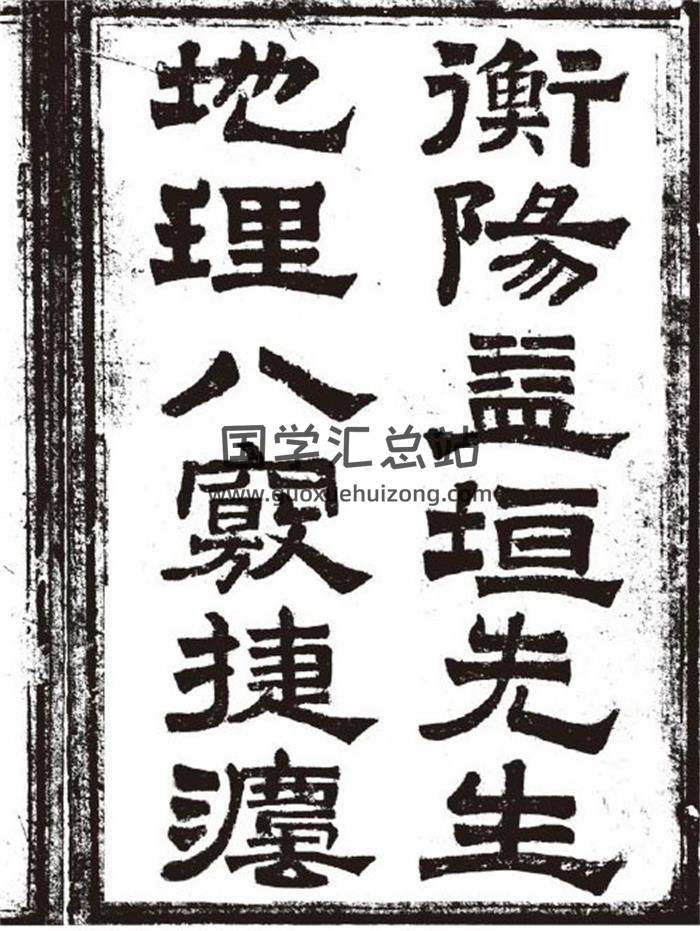 衡陽益垣先生
地理八竅捷灋
国学汇总站
www.guoxuehuizong.com